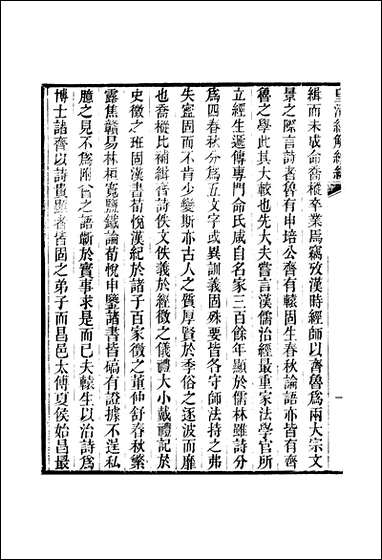 皇清經解續編
緝而未成命喬樅卒業焉竊攷漢時經師以齊魯爲兩大宗文
景之際言詩者魯有申培公齊有轅固生春秋論語亦皆有齊
魯之學此其大較也先大夫嘗言漢儒治經最重家法學官所
立經生遞傳專門命氏咸自名家三百餘年顯於儒林雖詩分
爲四春秋分爲五文字或異訓義固殊要皆各守師法持之弗
失寧固而不肯少變斯亦古人之質厚賢於季俗之逐波而靡
也喬樅比補緝齊詩佚文佚義於經徵之儀禮大小戴禮記於
史徵之班固漢書荀悅漢紀於諸子百家徵之董仲舒春秋繁
露焦贛易林桓寬鹽鐵論荀悅申鑒諸書皆碻有證據不逞私
臆之見不爲附會之語蘄於實事求是而已夫轅生以治詩爲
博士諸齊以詩貴顯者皆固之弟子而昌邑太傅夏侯始昌最